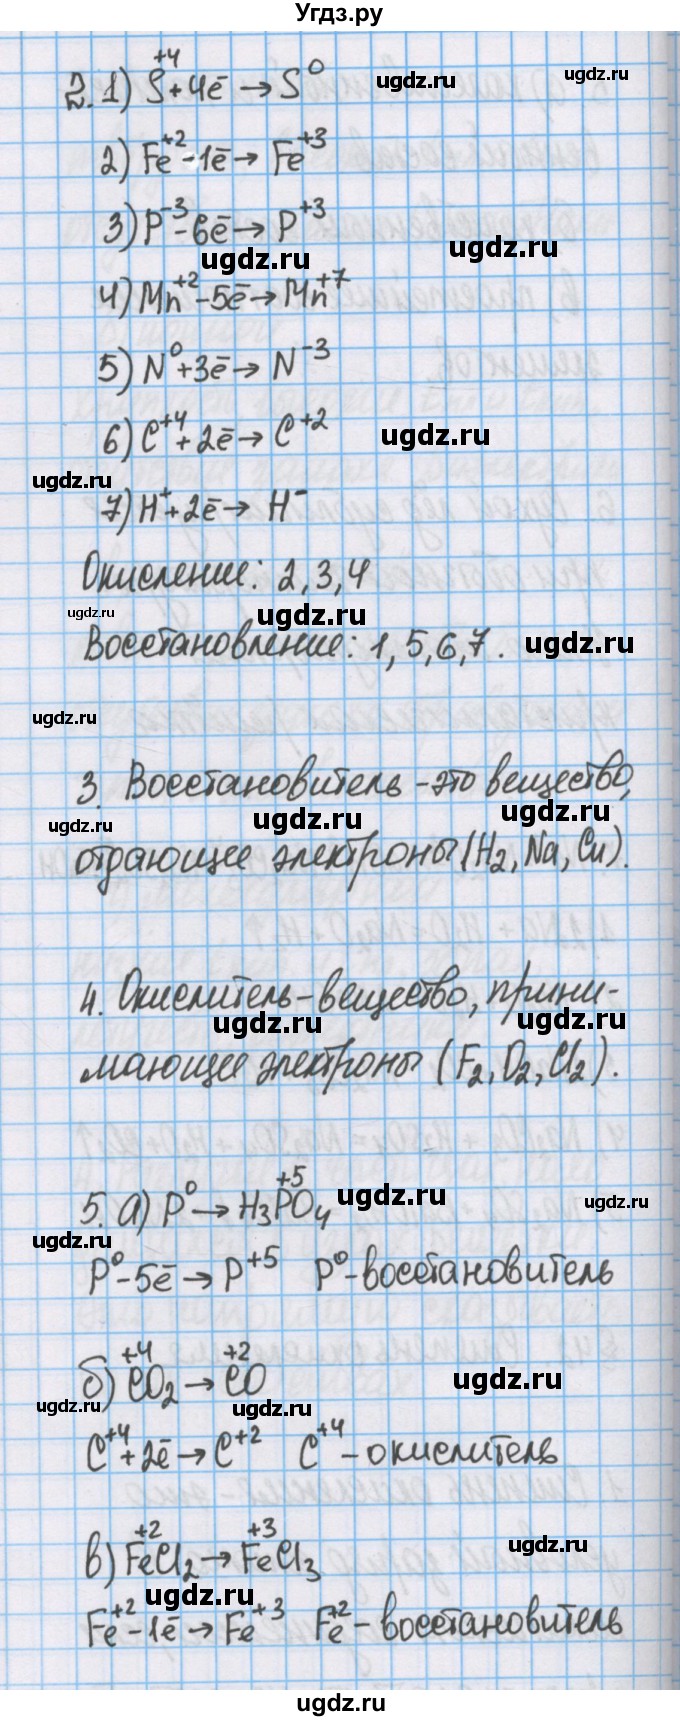 Угдз.ру
2. 1) S⁺⁴ + 4ē → S⁰
ugdz.ru ugdz.ru
2) Fe⁺² - 1ē → Fe⁺³
3) P⁻³ - 6ē → P⁺³
ugdz.ru ugdz.ru
4) Mn⁺² - 5ē → Mn⁺⁷
5) N⁰ + 3ē → N⁻³
6) C⁺⁴ + 2ē → C⁺²
ugdz.ru
ugdz.ru
7) H⁺ + 2ē → H⁻
Окисление: 2, 3, 4
ugdz.ru ugdz.ru
Восстановление: 1, 5, 6, 7.
ugdz.ru
ugdz.ru
3. Восстановитель - это вещество,
ugdz.ru ugdz.ru ugdz.ru
отдающее электроны (H₂, Na, Cu).
4. Окислитель - вещество, прини-
ugdz.ru ugdz.ru
мающее электроны (F₂, O₂, Cl₂).
5. а) P⁰ → H₃P⁺⁵O₄
ugdz.ru ugdz.ru
ugdz.ru
P⁰ - 5ē → P⁺⁵ P⁰ - восстановитель
б) C⁺⁴O₂ → C⁺²O
ugdz.ru
ugdz.ru ugdz.ru
C⁺⁴ + 2ē → C⁺² C⁺⁴ - окислитель
в) Fe⁺²Cl₂ → Fe⁺³Cl₃
ugdz.ru
ugdz.ru
Fe⁺² - 1ē → Fe⁺³ Fe⁺² - восстановитель
ugdz.ru